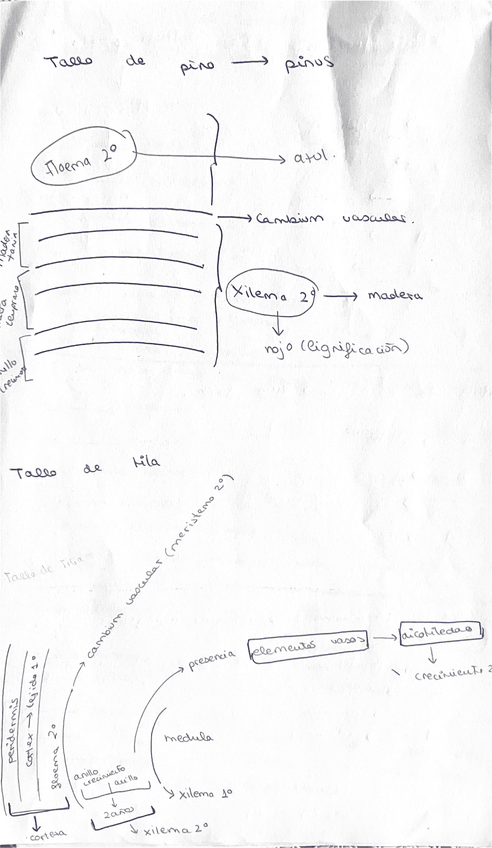 Tallo de pino → pinus
Floema 2º → azul.
→ Cambium vascular.
Xilema 2º → madera
rojo (lignificación)
Tallo de tila
Tallo de tila
cambium vascular (meristemo 2º)
presencia
elementos vasos → dicotiledao
crecimiento 2
peridermis
cortex → tejido 1º
floema 2º
medula
anillo
crecimiento
anillo
2 años
xilema 1º
xilema 2º
corteza